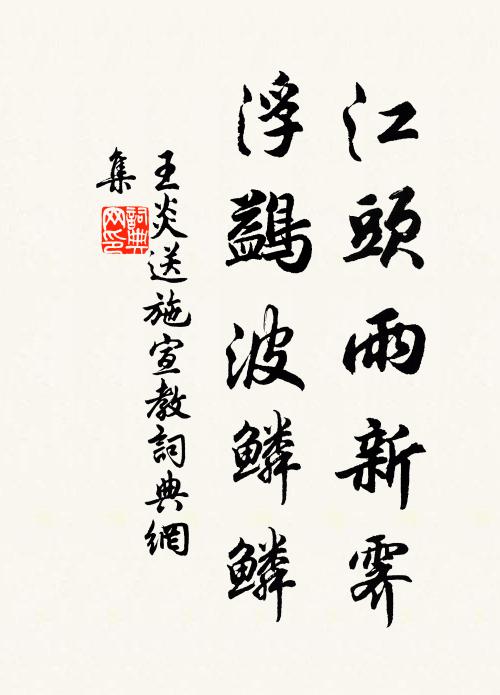 江頭雨新霽
浮鷁波鱗鱗
王炎送施宣教詞典網
集
詞典网印